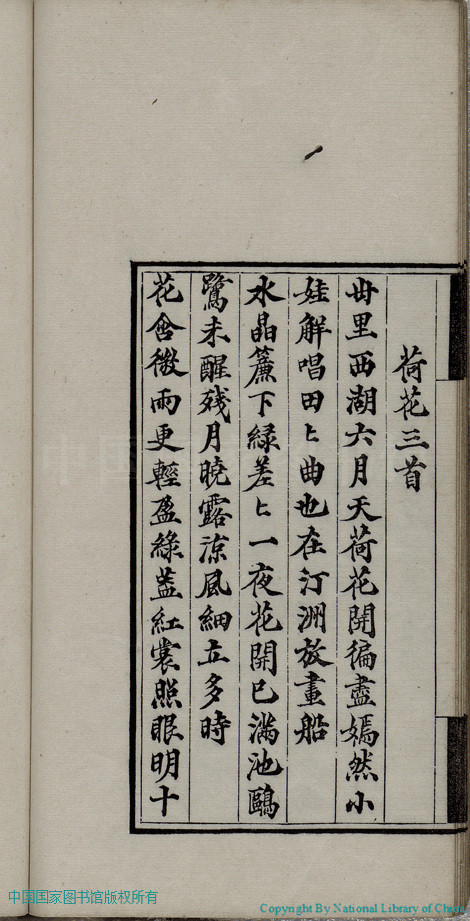 荷花三首
丗里西湖六月天荷花開徧盡嫣然小
娃解唱田〻曲也在汀洲放畫船
水晶簾下緑差〻一夜花開已滿池鷗
鷺未醒殘月曉露凉風細立多時
花含微雨更輕盈緑蓋紅裳照眼明十
中国国家图书馆版权所有
Copyright By National Library of China